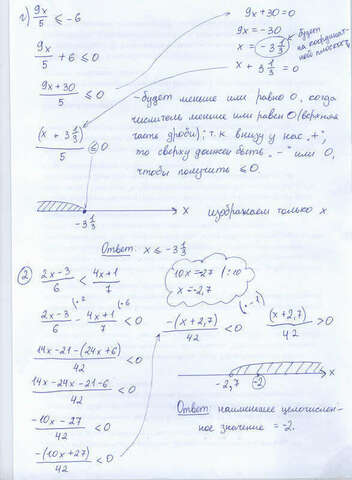 г) 9x/5 ≤ -6
9x/5 + 6 ≤ 0
(9x+30)/5 ≤ 0
(x + 3 1/3)/5 ≤ 0
9x+30=0
9x=-30
x = -3 1/3
x + 3 1/3 = 0
будет
на координат-
ной плоскости
-будет меньше или равно 0, когда
числитель меньше или равен 0 (верхняя
часть дроби); т.к внизу у нас „+",
то сверху должен быть „-" или 0,
чтобы получить ≤ 0.
-3 1/3
x
изображаем только x
Ответ: x ≤ -3 1/3
② (2x-3)/6 < (4x+1)/7
(2x-3)/6 - (4x+1)/7 < 0
(14x-21-(24x+6))/42 < 0
(14x-24x-21-6)/42 < 0
(-10x-27)/42 < 0
-(10x+27)/42 < 0
10x=27 |:10
x=-2,7
-(x+2,7)/42 < 0
(·-1)
(x+2,7)/42 > 0
-2,7
-2
x
Ответ: наименьшее целочислен-
ное значение = -2.